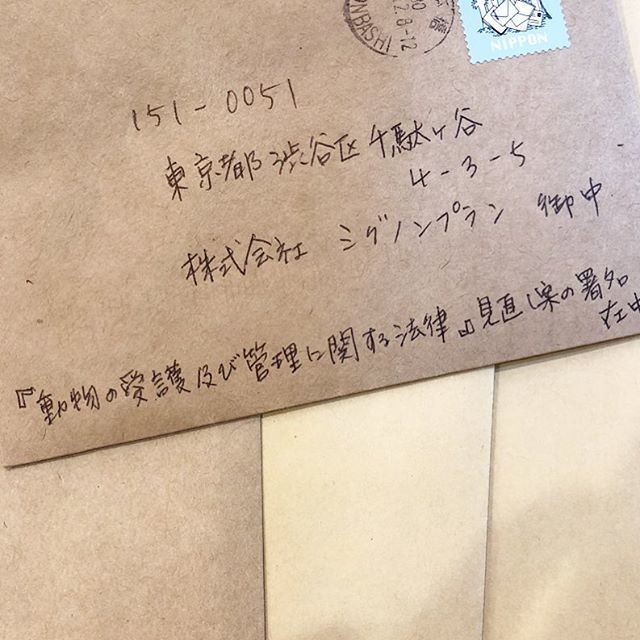 NIPPON
NBASHI
2.8-12
151-0051
東京都渋谷区千駄ヶ谷
4-3-5
株式会社 シグノンプラン 御中
『動物の愛護及び管理に関する法律』見直し案の署名
在中